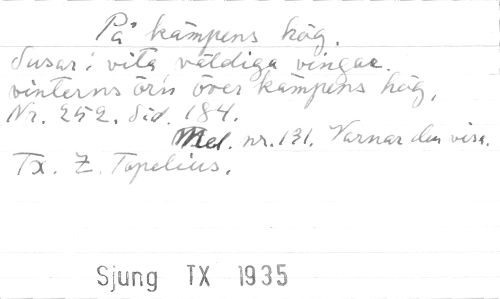 På kämpens hög.
Susar i vita väldiga vingar.
vinterns örn över kämpens hög,
Nr. 252. Sid. 184.
Mel. nr. 131. Varnar den visa.
Tx. Z. Topelius.
Sjung TX 1935